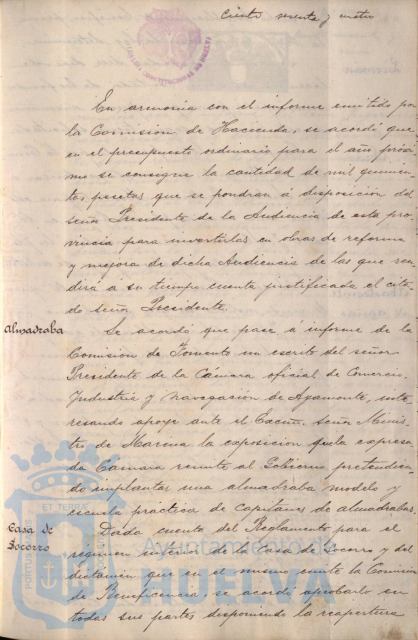 Ciento sesenta y cuatro
En armonia con el informe emitido por
la Comision de Hacienda, se acordó que
en el presupuesto ordinario para el año próxi
mo se consigne la cantidad de mil quinien
tas pesetas que se pondran á disposición del
señor Presidente de la Audiencia de esta pro
vincia para invertirlas en obras de reforma
y mejora de dicha Audiencia de las que ren
dirá a su tiempo cuenta justificada el cita
do señor Presidente.
Almadraba
Se acordó que pase á informe de la
Comision de Fomento un escrito del señor
Presidente de la Cámara oficial de Comercio,
Industria y navegación de Ayamonte, inte
resando apoye ante el Excmo. Señor Minis
tro de Marina la exposicion que la expresa
da Camara remite al Gobierno pretendien
do implantar una almadraba modelo y
escuela práctica de Capitanes de almadrabas.
Casa de
Socorro
Dada cuenta del Reglamento para el
regimen interior de la Casa de Socorro y del
dictamen que en el mismo emite la Comision
de Beneficencia, se acordó aprobarlo en
todas sus partes disponiendo la reapertura
Ayuntamiento de
HUELVA